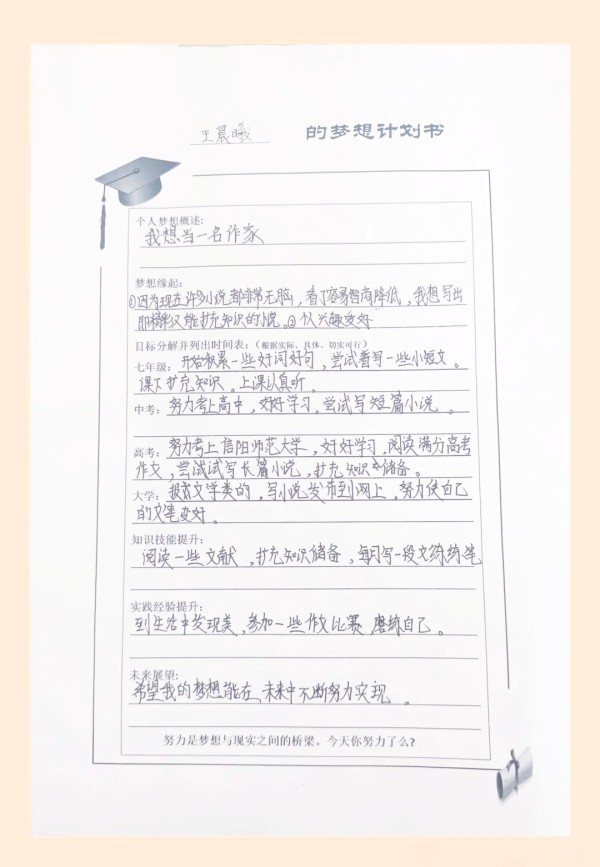 王晨曦 的梦想计划书
个人梦想概述:
我想当一名作家
梦想缘起:
①因为现在许多小说都非常无脑，看了容易智商降低，我想写出
即精彩又能扩充知识的小说。②个人兴趣爱好
目标分解并列出时间表:（根据实际、具体、切实可行）
七年级: 开始积累一些好词好句，尝试着写一些小短文。
课下扩充知识。上课认真听。
中考: 努力考上高中，好好学习，尝试写短篇小说。
高考: 努力考上信阳师范大学，好好学习，阅读满分高考
作文，尝试试写长篇小说，扩充知识储备。
大学: 报考文学类的，写小说发布到网上，努力使自己
的文笔变好。
知识技能提升:
阅读一些文献，扩充知识储备，每月写一段文练练笔
实践经验提升:
到生活中发现美，参加一些作文比赛，磨练自己。
未来展望:
希望我的梦想能在未来中不断努力实现。
努力是梦想与现实之间的桥梁。今天你努力了么?